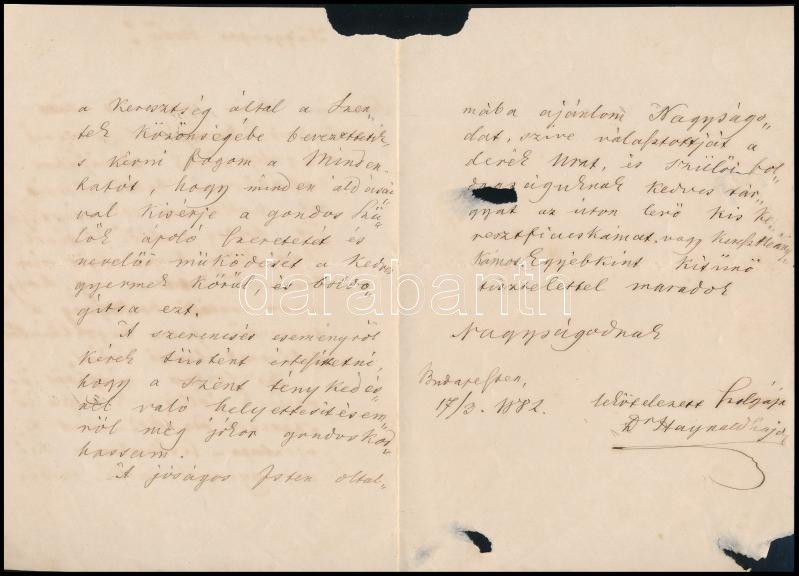 a Keresztség által a Szen„
tek Közönségébe bevezettetik
s kérni fogom a Minden„
hatót, hogy minden áldásá„
val kisérje a gondos Szü„
lők ápoló Szeretetét és
nevelői müködését a Kedves
gyermek Körül, és boldo„
gitsa ezt.
A szerencsés eseményről
kérek tüstént értesittetni,
hogy a szent ténykedés„
nél való helyettesitésem„
ről még jókor gondoskod„
hassam.
A jóságos Isten oltal„
mába ajánlom Nagyságo„
dat, szive választottját a
derék Urat, és szülői bol„
dogságuknak kedves tár„
gyát az úton levő kis Ke„
resztfiacskámat, vagy Keresztleány„
kámat. Egyébként kitünő
tisztelettel maradok
Nagyságodnak
Budapesten,
17/3. 1882.
lekötelezett Szolgája
Dr Haynald Lajos
darabanth